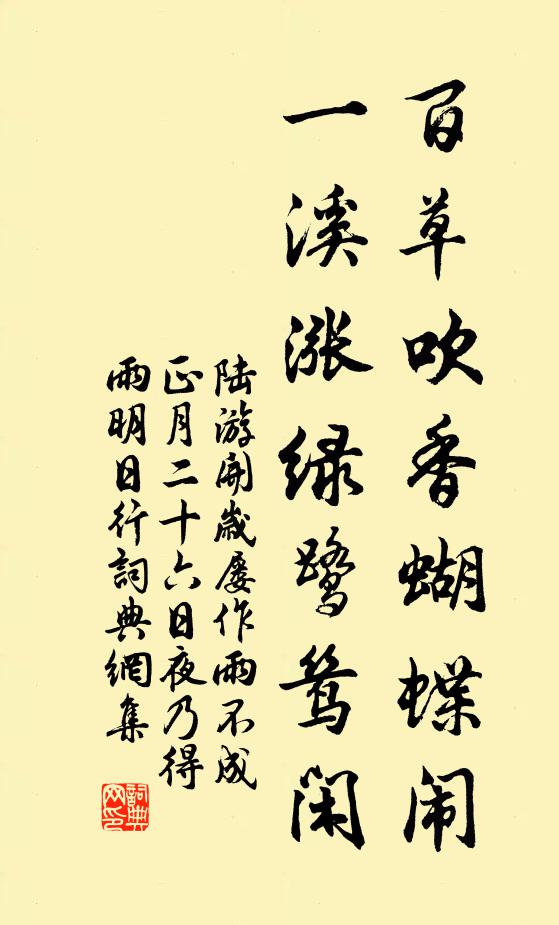 百草吹香蝴蝶闹
一溪涨绿鹭鸶闲
陆游開歲屡作雨不成
正月二十六日夜乃得
雨明日行詞典網集
詞典
网印